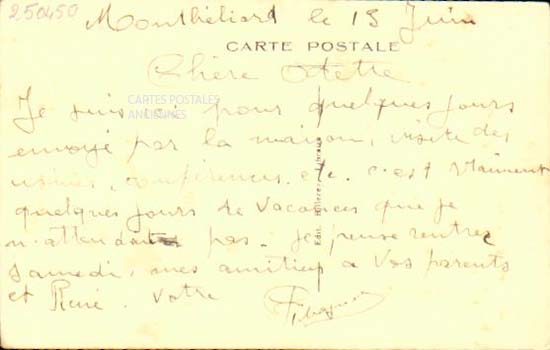 250450
Montbéliard le 15 Juin
CARTE POSTALE
Chère Odette
CARTES POSTALES
ANCIENNES
Je suis ici pour quelques jours
envoyé par la maison, visite des
usines, conférences, etc. c'est vraiment
quelques jours de vacances que je
n'attendais pas. Je pense rentrer
samedi, mes amitiés à vos parents
et René. Votre
Edit.